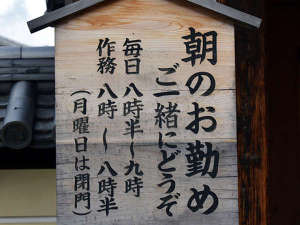 朝のお勤め
ご一緒にどうぞ
毎日 八時半〜九時
作務 八時〜八時半
(月曜日は閉門)